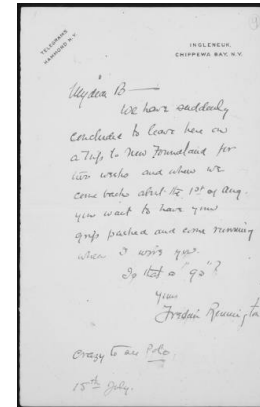 TELEGRAMS
HAMMOND N.Y.
INGLENEUK,
CHIPPEWA BAY, N.Y.
My dear B—
We have suddenly
concluded to leave here on
a trip to New Foundland for
two weeks and when we
come back abut the 1st of Aug.
you want to have your
grips packed and come running
when I wire you.
Is that a "go"?
Yours
Frederic Remington
Crazy to see Polo.
15th July.